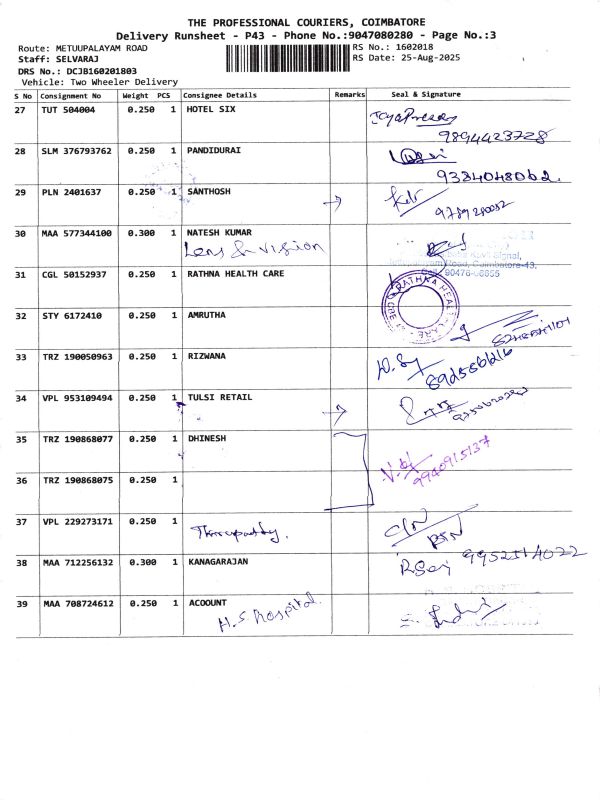 THE PROFESSIONAL COURIERS, COIMBATORE
Delivery Runsheet - P43 - Phone No.:9047080280 - Page No.:3
Route: METUUPALAYAM ROAD RS No.: 1602018
Staff: SELVARAJ RS Date: 25-Aug-2025
DRS No.: DCJB160201803
Vehicle: Two Wheeler Delivery
S No Consignment No Weight PCS Consignee Details Remarks Seal & Signature
27 TUT 504004 0.250 1 HOTEL SIX
9894423728
28 SLM 376793762 0.250 1 PANDIDURAI
9384048062.
29 PLN 2401637 0.250 1 SANTHOSH
30 MAA 577344100 0.300 1 NATESH KUMAR
Lens & Vision
Road, Coimbatore-43,
31 CGL 50152937 0.250 1 RATHNA HEALTH CARE
32 STY 6172410 0.250 1 AMRUTHA
33 TRZ 190050963 0.250 1 RIZWANA
34 VPL 953109494 0.250 1 TULSI RETAIL
35 TRZ 190868077 0.250 1 DHINESH
9940915137
36 TRZ 190868075 0.250 1
37 VPL 229273171 0.250 1
38 MAA 712256132 0.300 1 KANAGARAJAN
9952514022
39 MAA 708724612 0.250 1 ACOOUNT
H.S hospital.